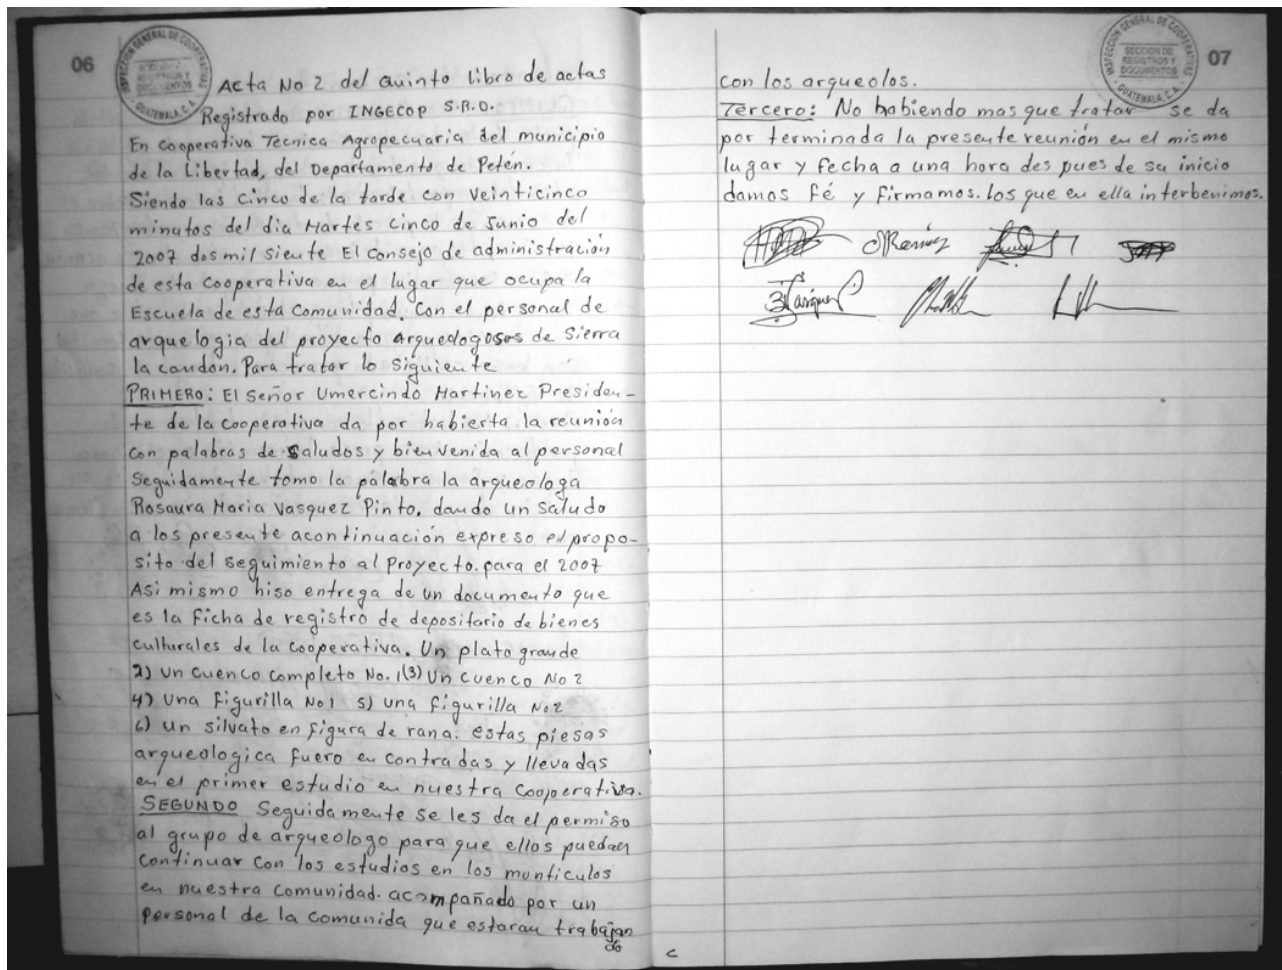 06
INSPECCIÓN GENERAL DE COOPERATIVAS
GUATEMALA, C.A.
Acta No 2 del Quinto Libro de actas
Registrado por INGECOP S.R.D.
En Cooperativa Tecnica Agropecuaria del municipio
de la Libertad, del Departamento de Petén.
Siendo las Cinco de la tarde con Veinticinco
minutos del dia Martes cinco de Junio del
2007 dos mil siente El Consejo de administración
de esta Cooperativa en el lugar que ocupa la
Escuela de esta Comunidad. Con el personal de
arquelogia del proyecto arqueologosos de Sierra
la candon. Para tratar lo siguiente
PRIMERO: El Señor Umercindo Martinez Presiden-
te de la Cooperativa da por habierta la reunión
con palabras de saludos y bienvenida al personal
Seguidamente tomo la palabra la arqueologa
Rosaura Maria Vasquez Pinto. dando un saludo
a los presente acontinuación expreso el propo-
sito del seguimiento al Proyecto. para el 2007
Asi mismo hiso entrega de un documento que
es la ficha de registro de depositario de bienes
culturales de la cooperativa. Un plato grande
2) un cuenco completo No. 1(3) un cuenco No 2
4) una figurilla No1 5) una figurilla No2
6) un silvato en figura de rana. estas piesas
arqueologica fuero en contradas y llevadas
en el primer estudio en nuestra Cooperativa.
SEGUNDO Seguidamente se les da el permiso
al grupo de arqueologo para que ellos puedaen
continuar con los estudios en los monticulos
en nuestra comunidad. acompañado por un
personal de la comunida que estaran trabajan
do
07
INSPECCIÓN GENERAL DE COOPERATIVAS
SECCION DE
REGISTROS Y
DOCUMENTOS
GUATEMALA, C.A.
con los arqueolos.
Tercero: No habiendo mas que tratar se da
por terminada la presente reunión en el mismo
lugar y fecha a una hora des pues de su inicio
damos Fé y firmamos. los que en ella interbenimos.